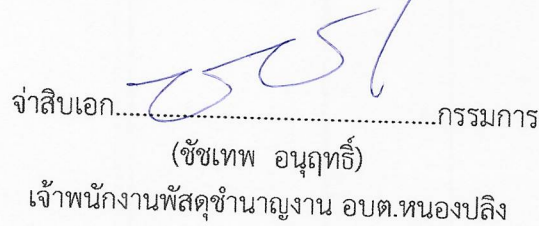 จ่าสิบเอก........................................กรรมการ
(ชัชเทพ อนุฤทธิ์)
เจ้าพนักงานพัสดุชำนาญงาน อบต.หนองปลิง